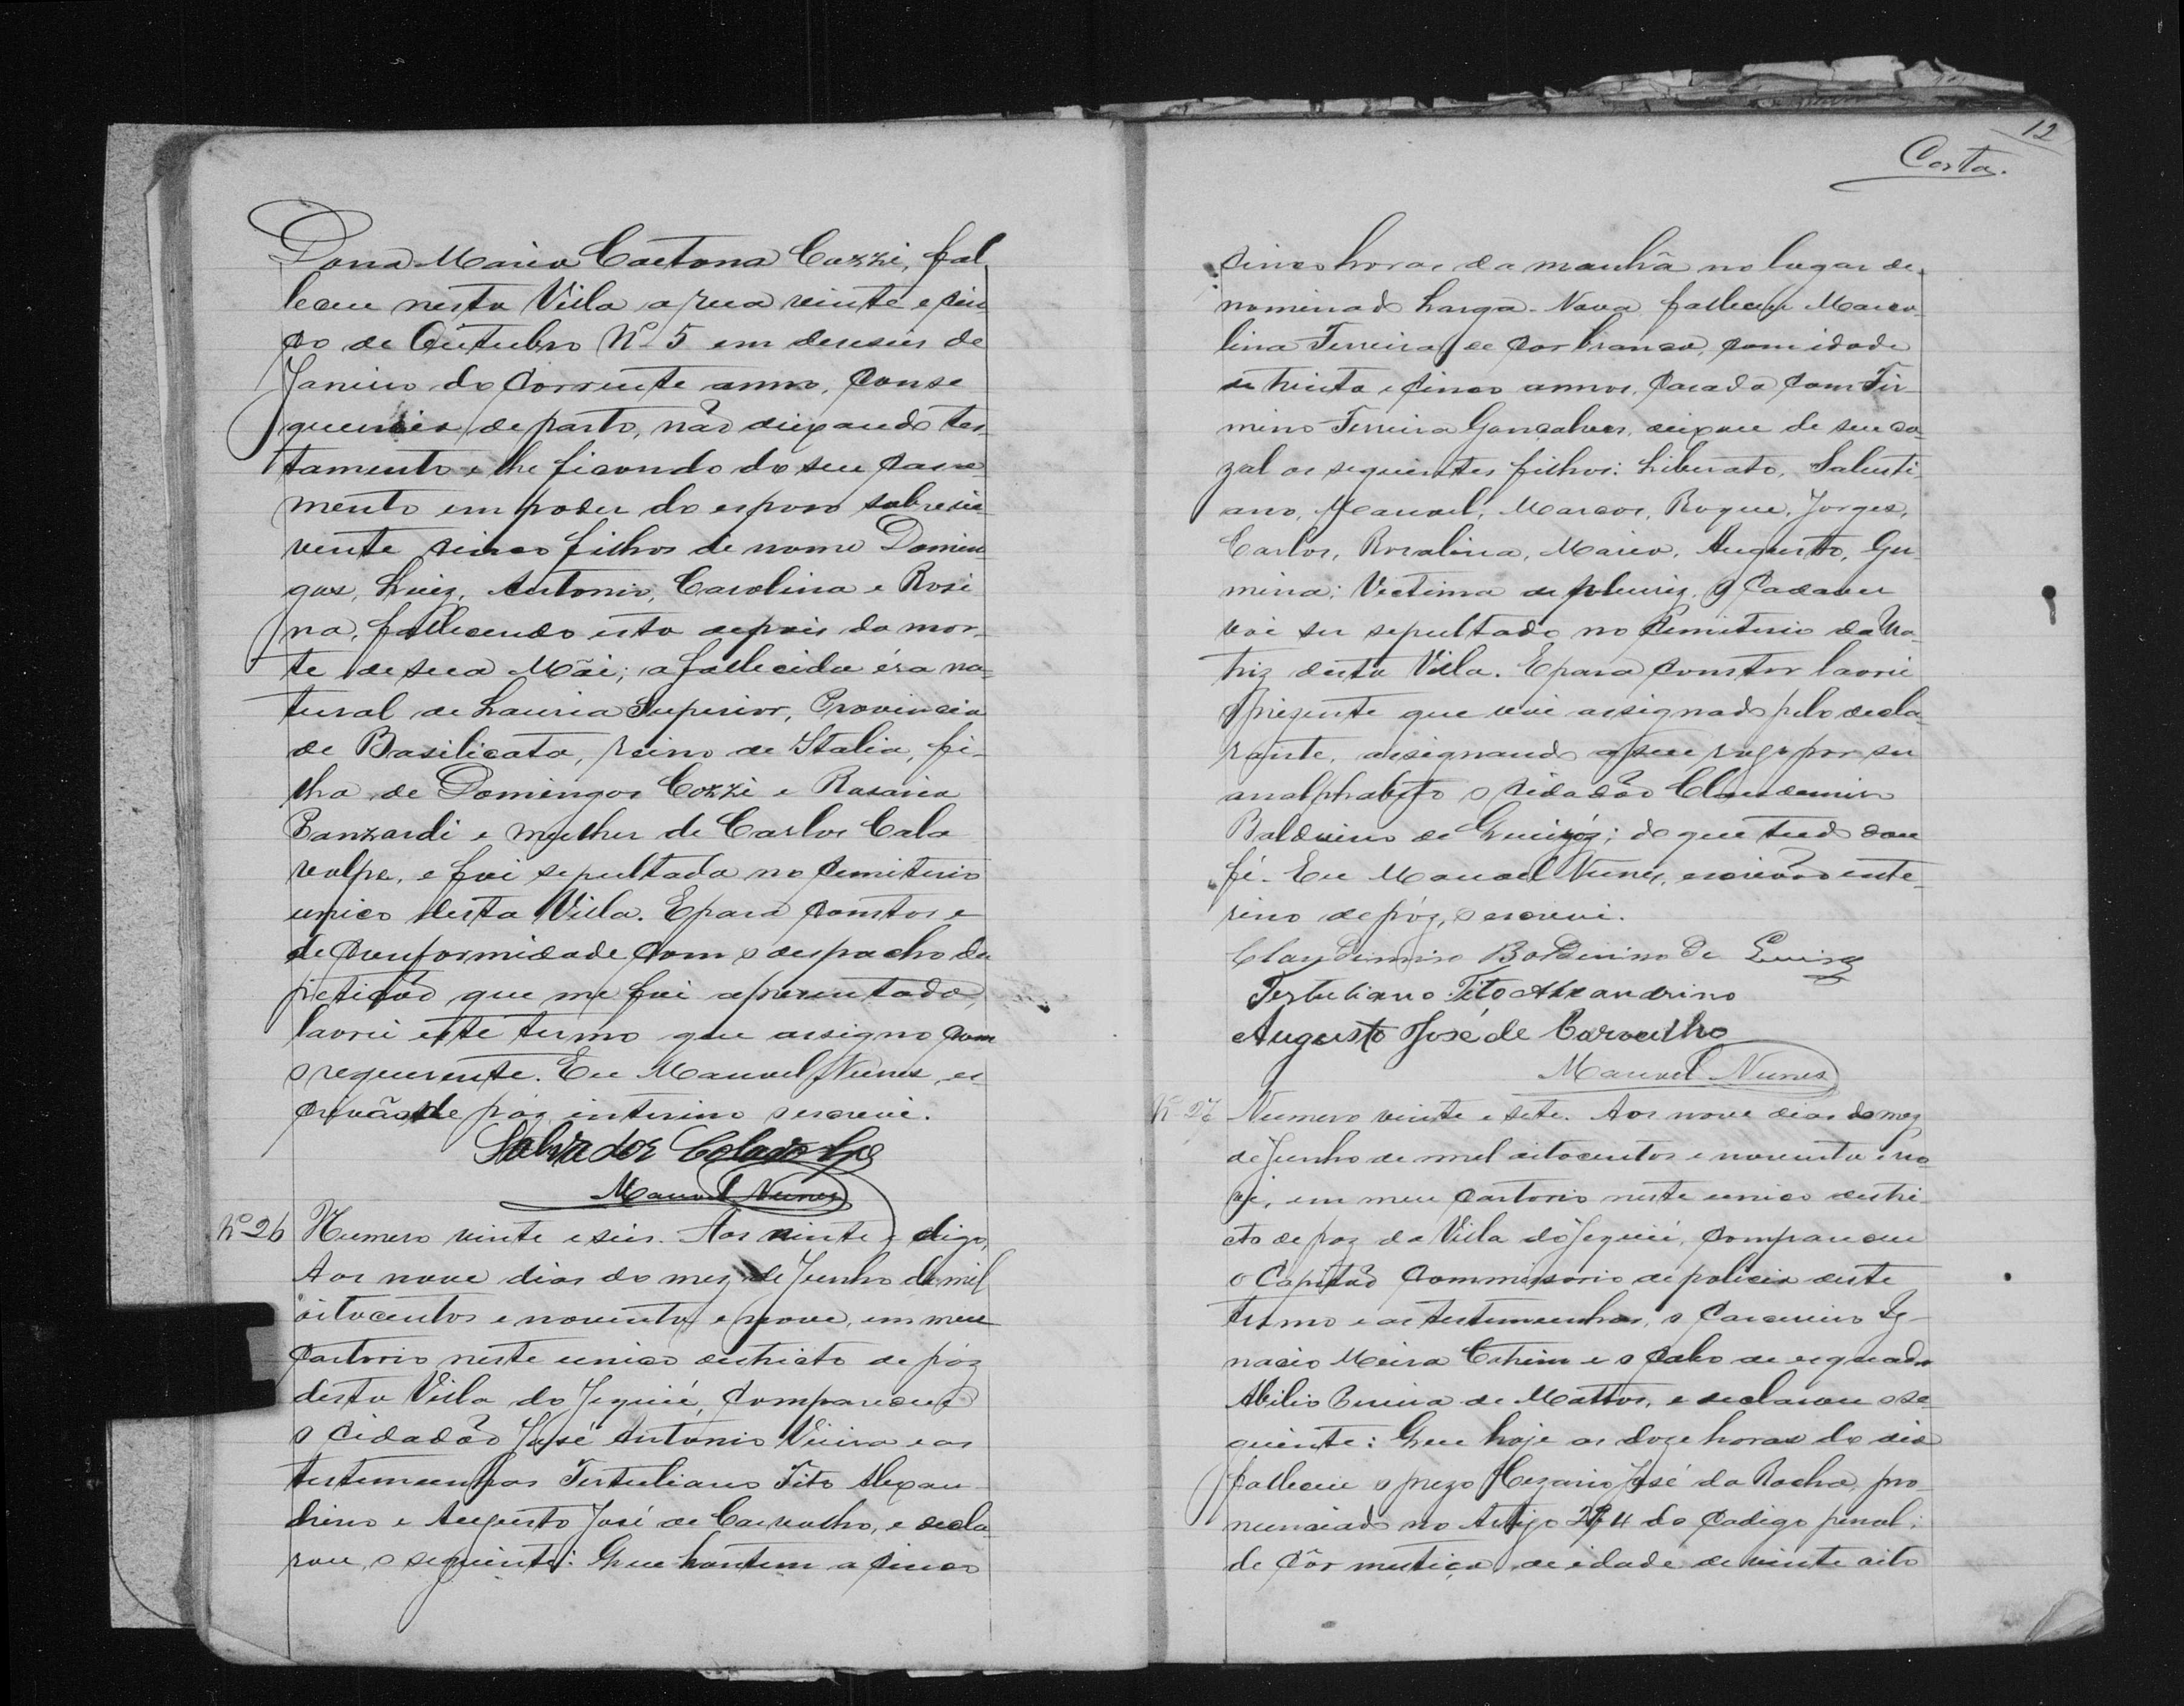 Dona Maria Caetana Cozzi, fal
leceu nesta Villa a rua vinte e cin
co de Outubro Nº 5 em deseseis de
Janeiro do corrente anno, conse
quencia de parto, não deixando tes
tamento e lhe ficando do seu casa
mento em poder do esposo sobrevi
vente cinco filhos de nome Domin
gos, Luiz, Antonio, Carolina e Rosi
na, fallecendo esta depois da mor
te de sua Mãi; a fallecida éra na
tural de Lauria Superior, Provincia
de Basilicata, reino de Italia, fi-
lha de Domingos Cozzi e Rosaria
Panzardi e mulher de Carlos Cala
volpe, e foi sepultada no cemiterio
unico desta Villa. E para constar e
de conformidade com o despacho da
petição que me foi apresentada,
lavrei este termo que assigno com
o requerente. Eu Manoel Nunes, es
crivão de páz interino o escrevi.
Salvador Colavolpe
Manoel Nunes
Nº 26 Numero vinte e seis. Aos vinte e digo,
Aos nove dias do mez de Junho de mil
oitocentos e noventa e nove, em meu
Cartorio neste unico districto de páz
desta Villa do Jequié, compareceu
o cidadão José Antonio Vieira e as
testemunhas Tertuliano Tito Alexan
drino e Augusto José de Carvalho, e decla
rou o seguinte: Que hontem a cinco
12
Costa.
cinco horas da manhã no lugar de
nominado Larga-Nova falleceu Marco
lina Ferreira, de cor branca, com idade
de trinta e cinco annos, casada com Fir
mino Ferreira Gonçalves, deixou de seu ca
zal os seguintes filhos: Liberato, Salusti
ano, Manoel, Marcos, Roque, Jorges,
Carlos, Rosalina, Maria, Augusto, Gu
mina; Victima de pleuriz. O cadaver
vai ser sepultado no cemiterio da Ma
triz desta Villa. E para constar lavrei
o prezente que vai assignado pelo decla
rante, assignando a seu rogo por ser
analphabeto o cidadão Claudemiro
Balduino de Queiróz; do que tudo dou
fé. Eu Manoel Nunes, escrivão inte
rino de páz, o escrevi.
Claudimiro Balduino de Queiroz
Tertuliano Tito Alexandrino
Augusto José de Carvalho
Manoel Nunes
Nº 27 Numero vinte e sete. Aos nove dias do mez
de Junho de mil oitocentos e noventa e no
ve, em meu cartorio neste unico destri
cto de paz da Villa do Jequié, compareceu
o Capitão Commissario de policia deste
termo e as testemunhas, o carcereiro Ig-
nacio Meira Cotrim e o cabo de esquadra
Abilio Pereira de Mattos, e declarou o se
guinte: Que hoje as doze horas do dia
falleceu o prezo Cezario José da Rocha, pro
nunciado no Artigo 294 do Codigo penal;
de côr mestiça, de idade de vinte oito